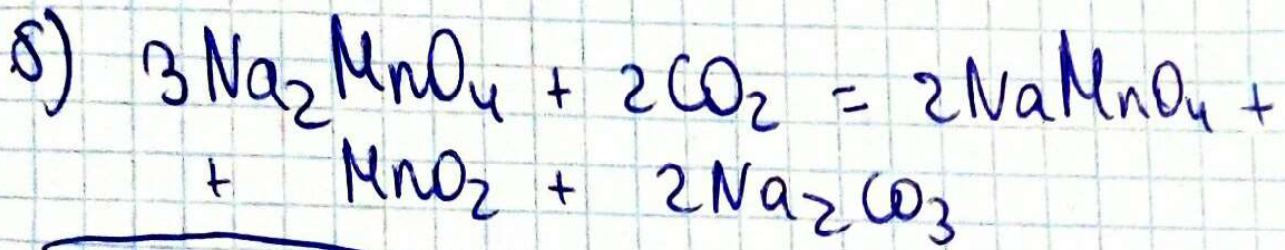 б) 3Na₂MnO₄ + 2CO₂ = 2NaMnO₄ +
+ MnO₂ + 2Na₂CO₃